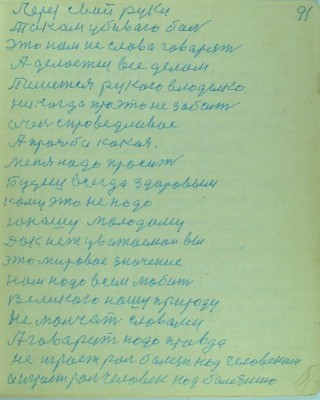 91
Через свой руки
Таком убиваго бал
Это нам не слова говарят
А делоетца все делом
Пишется рукого влодымко
никогда про это не забыт
очен справедливое
А прозба какоя.
меня надо просит
Будиш всегда здоровым
кому это не надо
юнашу молодому
Дак нет уважаемои вы
это мировое значение
нам надо всем любит
Великого нашу природу
Не молчат словами
А говарит надо правда
не играет рол болезн над человеком
а играт рол человек над болезнию